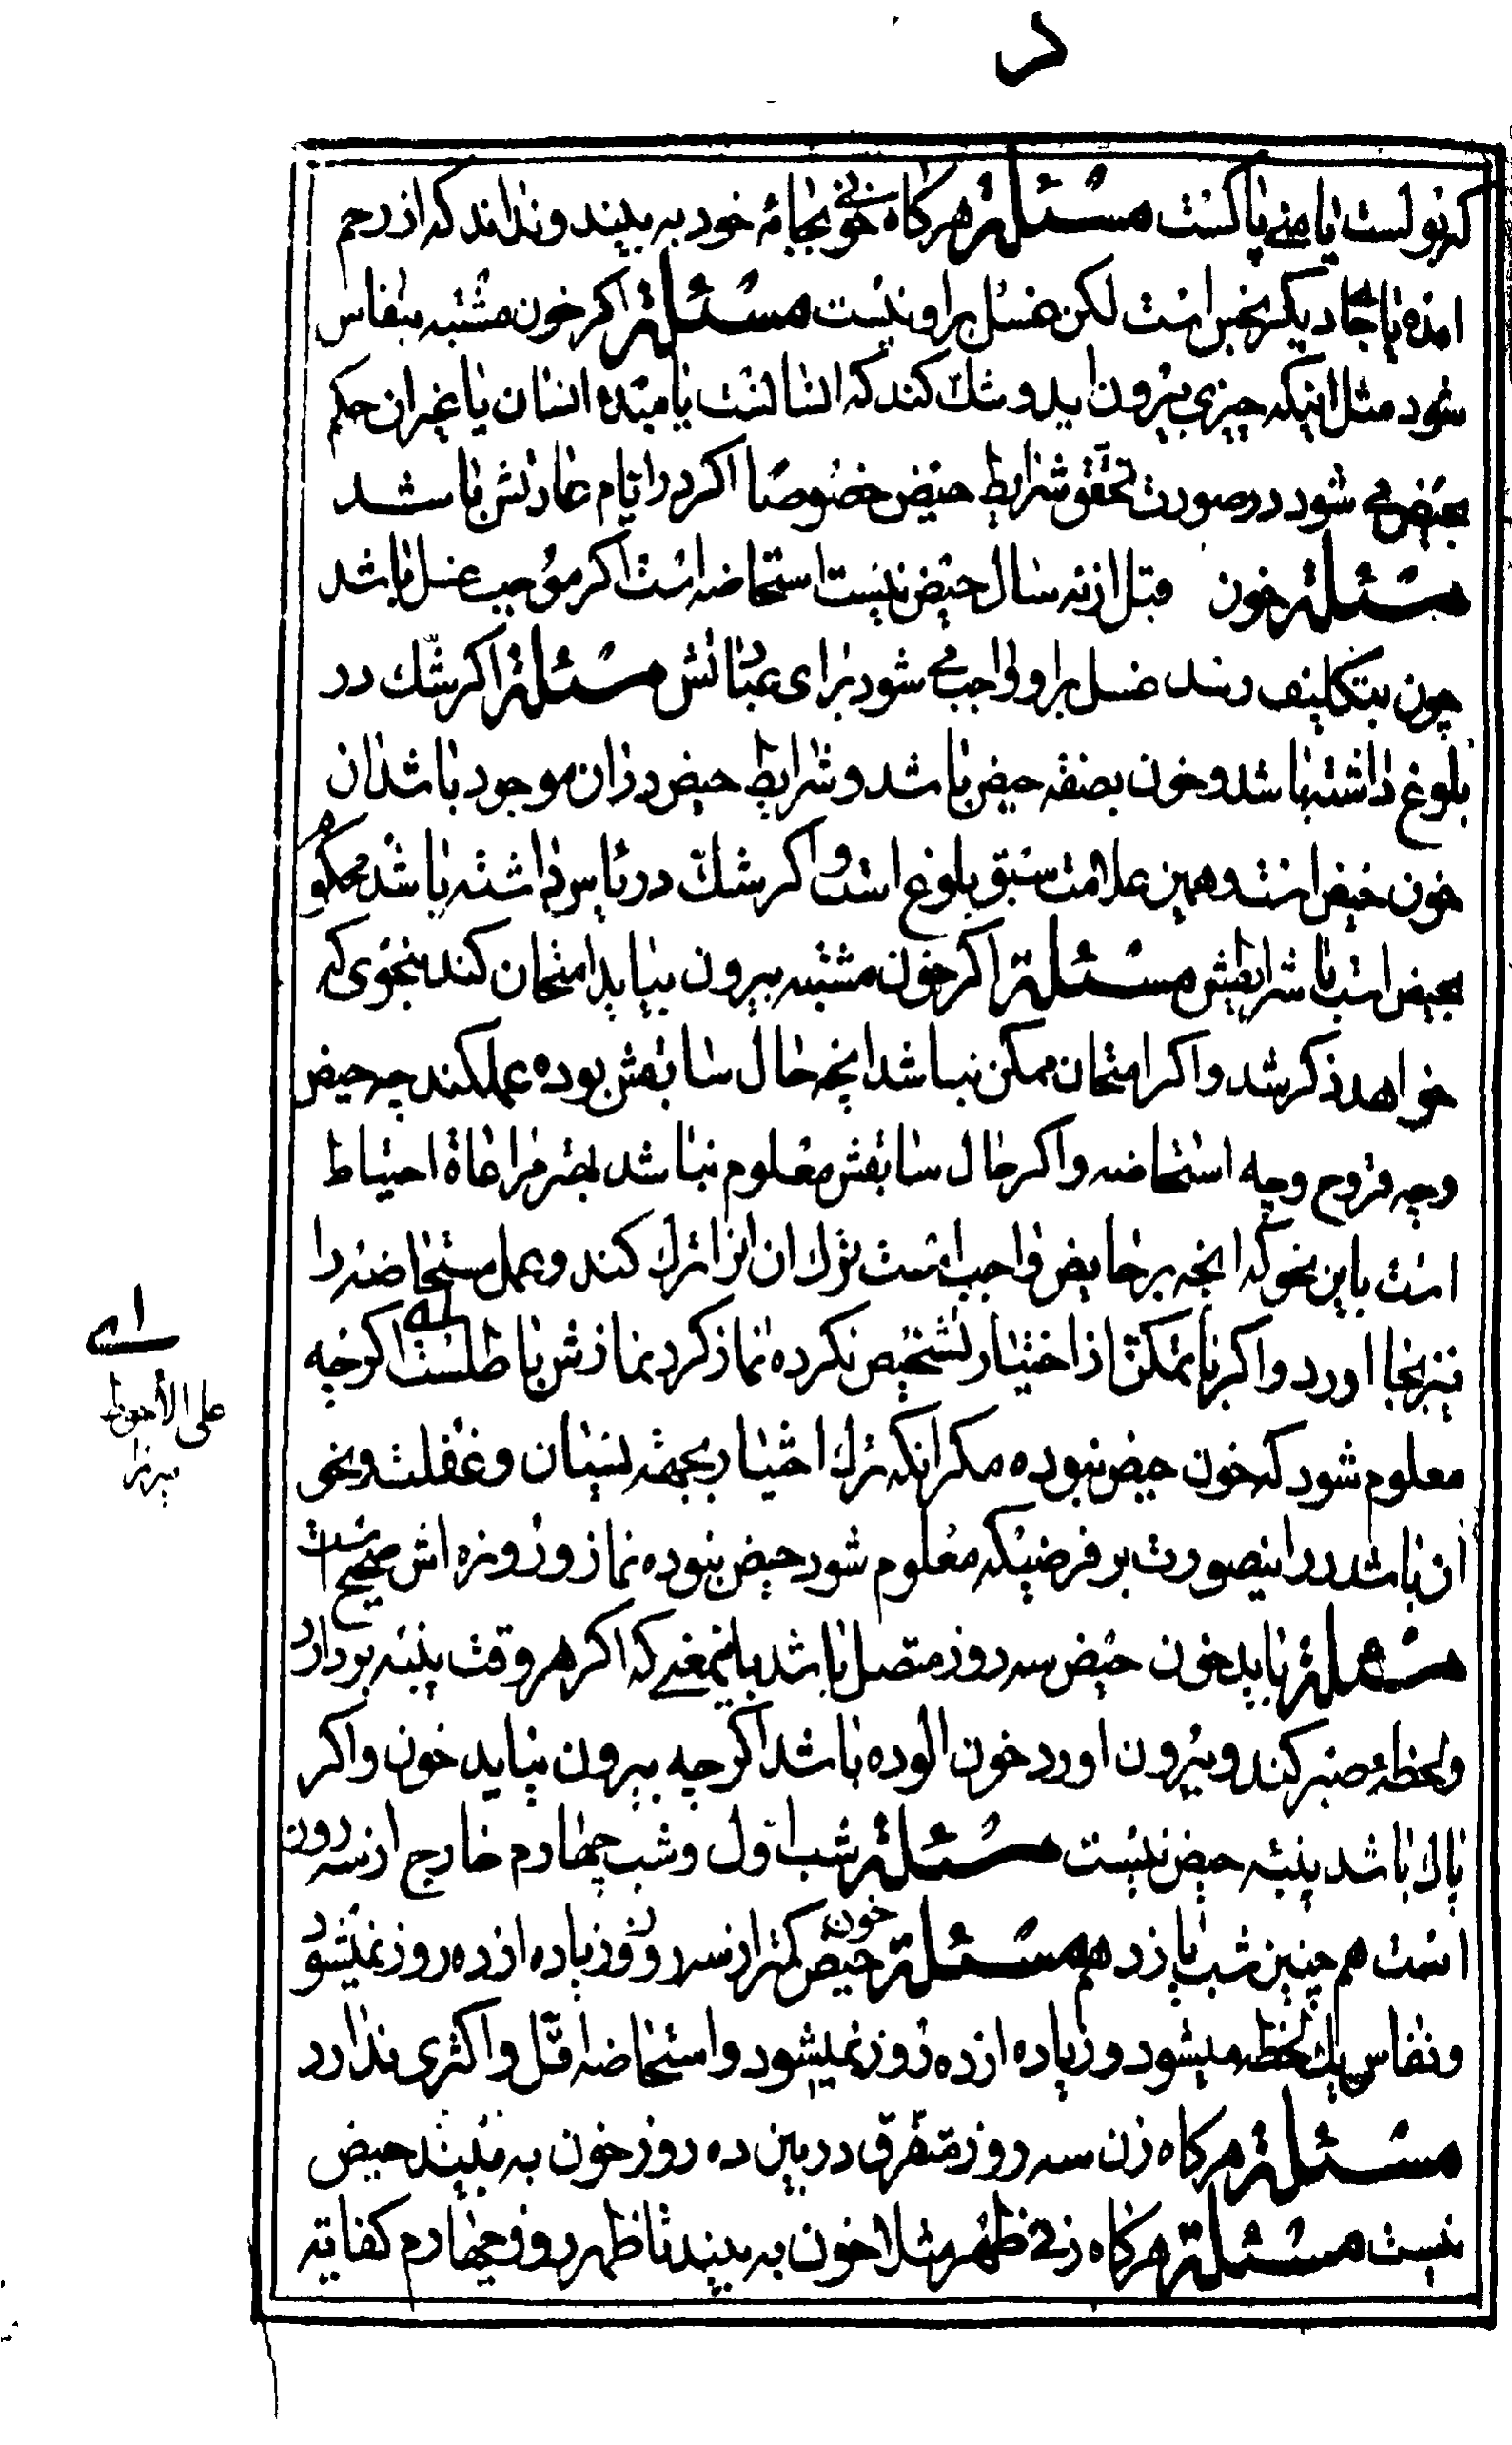 در
که بولست یا منی پاکست مسئلة هرگاه زنی خونی بجامهٔ خود به بیند و نداند که از رحم
امده یا جای دیگر نجس است لکن غسل براو نیست مسئلة اگر خون مشتبه بنفاس
شود مثل اینکه چیزی بیرون اید و شك کند که انسانست یا مبدء انسان یا غیر ان حکم
بحیض می شود در صورت تحقق شرایط حیض خصوصًا اگر در ایام عادتش باشد
مسئلة خون قبل از نه سال حیض نیست استحاضه است اگر موجب غسل باشد
چون بتکلیف رسد غسل براو واجب می شود برای عباداتش مسئلة اگر شك در
بلوغ داشته باشد و خون بصفة حیض باشد و شرایط حیض در ان موجود باشد ان
خون حیض است و همین علامت سبق بلوغ است و اگر شك در یاس داشته باشد محکوم
بحیض است با شرایطش مسئلة اگر خون مشتبه بیرون بیاید امتحان کند بنحوی که
خواهد ذکر شد و اگر امتحان ممکن نباشد انچه حال سابقش بوده عمل کند چه حیض
و چه قروح و چه استحاضه و اگر حال سابقش معلوم نباشد بهتر مراعاة احتیاط
است باین نحو که انچه بر حایض واجب است ترك ان انرا ترك کند و عمل مستحاضه را
نیز بجا اورد و اگر با تمکن از اختبار تشخیص نکرده نماز کرد نمازش باطلست اگر چه
معلوم شود که خون حیض نبوده مگر انکه ترك اختبار بجهة نسیان و غفلت و نحو
ان باشد در اینصورت بر فرضیکه معلوم شود حیض نبوده نماز و روزه اش صحیح است
مسئلة باید خون حیض سه روز متصل باشد باینمعنی که اگر هر وقت پنبه بردارد
و لحظهٔ صبر کند و بیرون اورد خون الوده باشد اگر چه بیرون نیاید خون و اگر
پاك باشد پنبه حیض نیست مسئلة شب اول و شب چهارم خارج از سه روز
است هم چنین شب یازدهم مسئلة خون حیض کمتر از سه روز و زیاده از ده روز نمیشود
و نفاس یك لحظه میشود و زیاده از ده روز نمیشود و استحاضه اقل و اکثری ندارد
مسئلة هرگاه زن سه روز متفرق در بین ده روز خون به بیند حیض
نیست مسئلة هرگاه زنی ظهر مثلا خون به بیند تا ظهر روز چهارم کفایة
علی الأحوط
میرزا